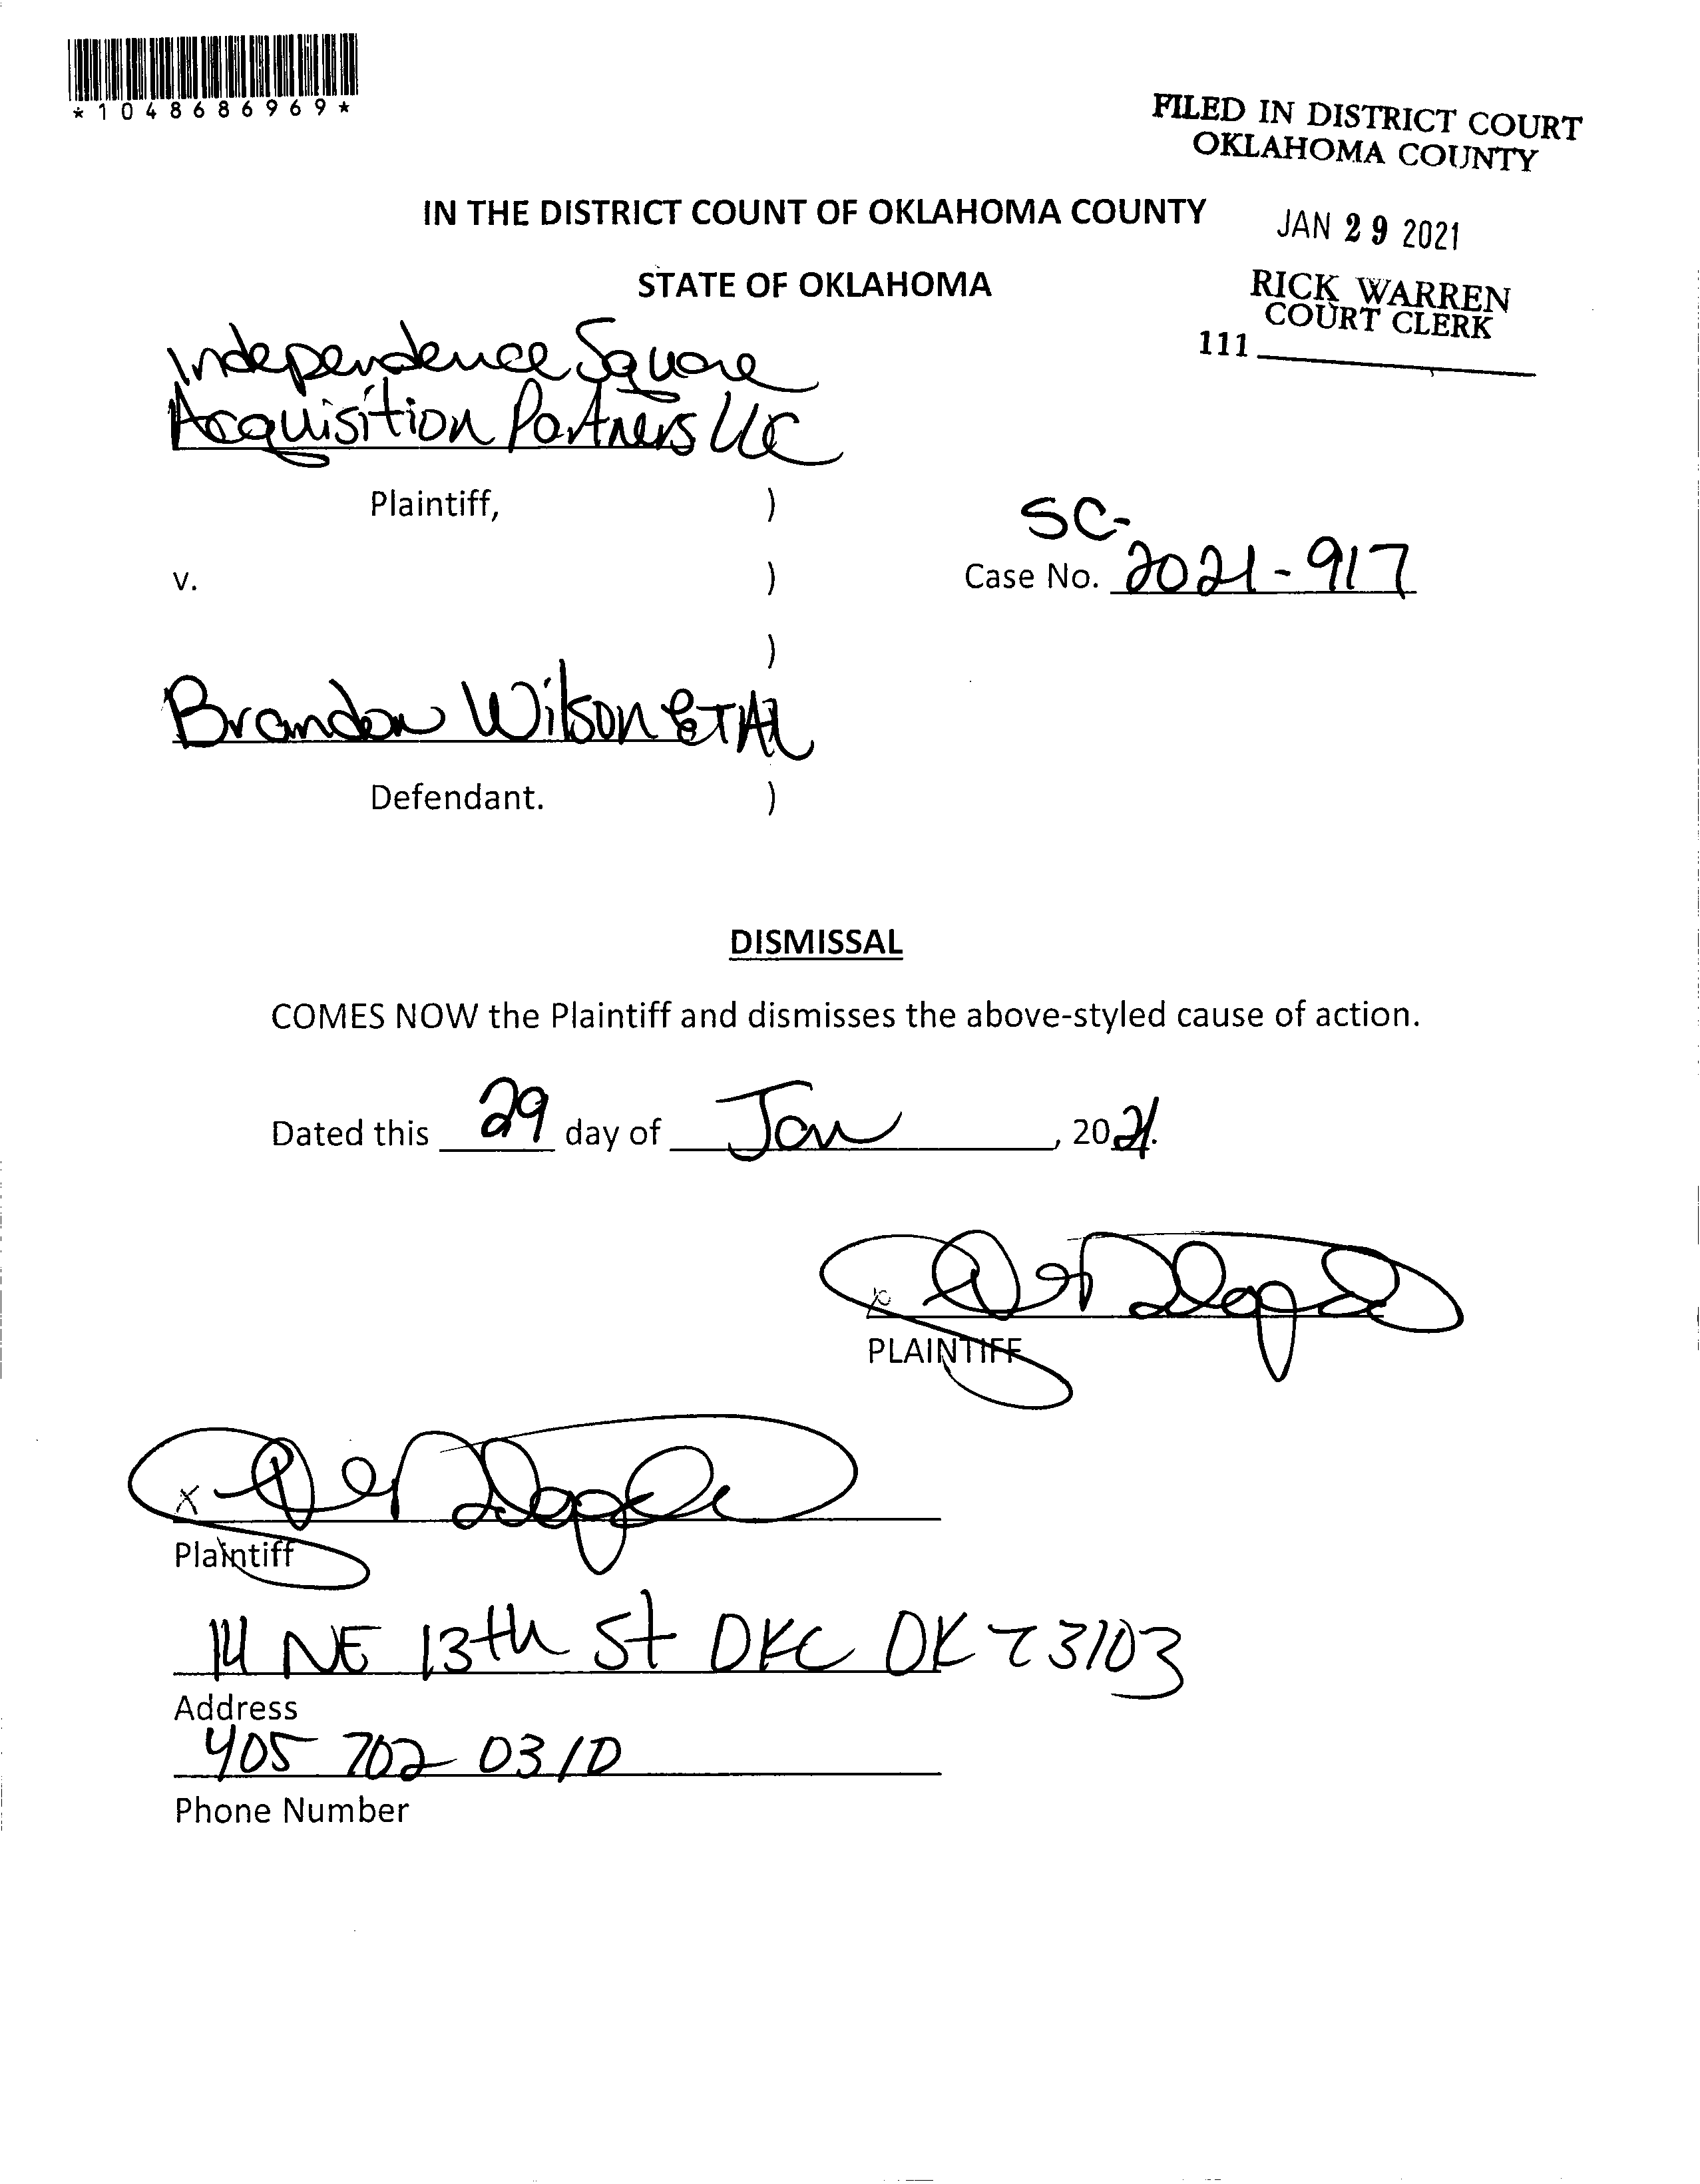 *1048686969*
FILED IN DISTRICT COURT
OKLAHOMA COUNTY
IN THE DISTRICT COUNT OF OKLAHOMA COUNTY
JAN 29 2021
STATE OF OKLAHOMA
RICK WARREN
COURT CLERK
111
Independence Square
Acquisition Partners LLC
Plaintiff, )
SC-
v. ) Case No. 2021-917
)
Brandon Wilson ET AL
Defendant. )
DISMISSAL
COMES NOW the Plaintiff and dismisses the above-styled cause of action.
Dated this 29 day of Jan, 2021.
x
PLAINTIFF
x
Plaintiff
14 NE 13th St OKC OK 73103
Address
405 702 0310
Phone Number